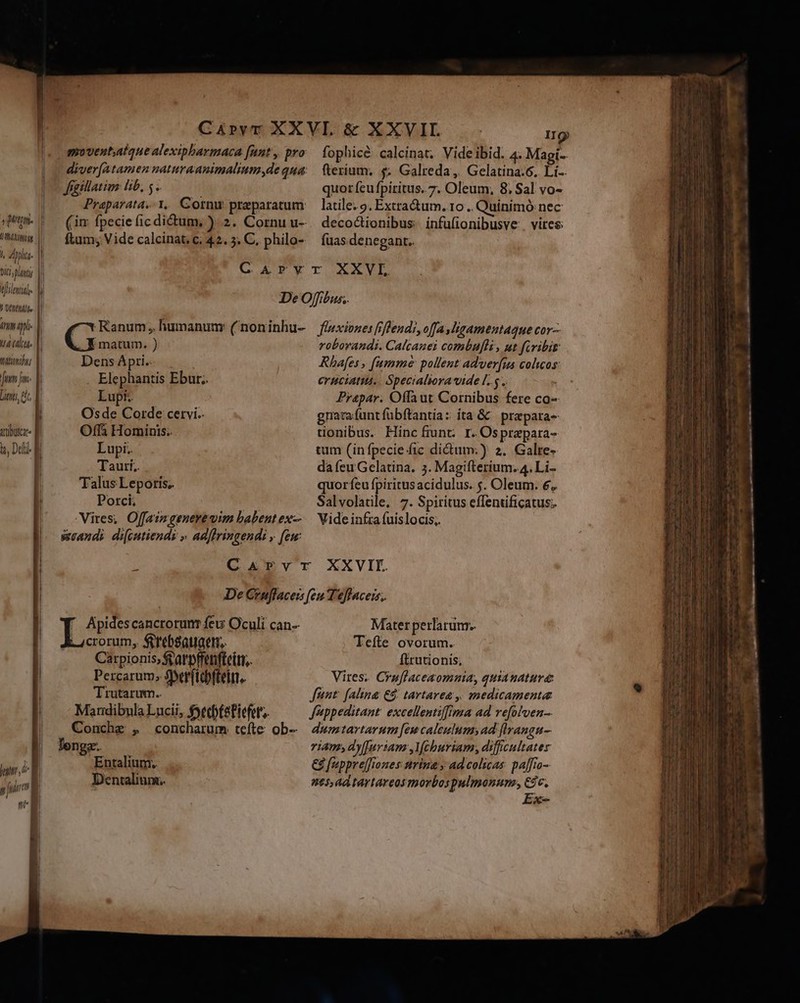 CAPVT XXVI. & XXVII. 119
movent, atque alexipharmaca sunt, pro
diversa tamen natura animalium, de qua
sigillatim lib. 5.
Præparata. 1. Cornu præparatum
(in specie sic dictum.) 2. Cornu u-
stum, Vide calcinat. c. 42. 3. C. philo-
sophicè calcinat. Vide ibid. 4. Magi-
sterium. 5. Galreda, Gelatina. 6. Li-
quor seu spiritus. 7. Oleum. 8. Sal vo-
latile. 9. Extractum. 10. Quinimò nec
decoctionibus infusionibusve vires
suas denegant.
CAPVT XXVI.
De Ossibus.
CRanum, humanum (non inhu-
matum.)
Dens Apri.
Elephantis Ebur.
Lupi.
Os de Corde cervi.
Ossa Hominis.
Lupi.
Tauri.
Talus Leporis.
Porci.
Vires, Ossa in genere vim habent ex-
siccandi discutiendi, adstringendi, seu
fluxiones sistendi, ossa, ligamentaque cor-
roborandi. Calcanei combusti, ut scribit
Rhases, summè pollent adversus colicos
cruciatus. Specialiora vide l. 5.
Præpar. Ossa ut Cornibus fere co-
gnata sunt substantia: ita & præpara-
tionibus. Hinc fiunt. 1. Os præpara-
tum (in specie sic dictum.) 2. Galre-
da seu Gelatina. 3. Magisterium. 4. Li-
quor seu spiritus acidulus. 5. Oleum. 6.
Sal volatile. 7. Spiritus essentificatus.
Vide infra suis locis.
CAPVT XXVII.
De Crustaceis seu Testaceis.
LApides cancrorum seu Oculi can-
crorum, Krebsaugen.
Carpionis, Karpffenstein.
Percarum, Persichstein.
Trutarum.
Mandibula Lucii, Hechtskiefer.
Conchæ, concharum testæ ob-
longæ.
Entalium.
Dentalium.
Mater perlarum.
Testæ ovorum.
strutionis.
Vires. Crustacea omnia, quia naturæ
sunt salinæ & tartareæ, medicamenta
suppeditant excellentissima ad resolven-
dum tartarum seu calculum, ad strangu-
riam, dyssuriam, Ischuriam, difficultates
& suppressiones urinæ, ad colicas passio-
nes, ad tartareos morbos pulmonum, &c.
Ex-